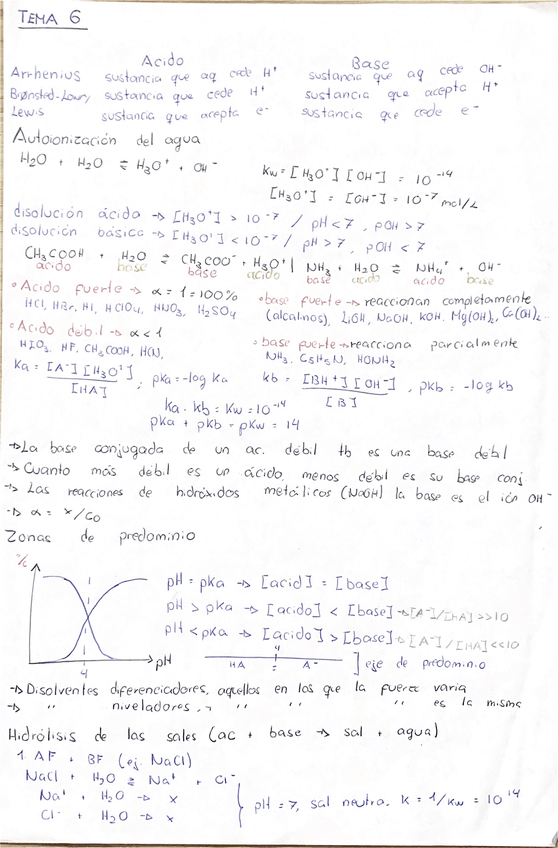 TEMA 6
Acido Base
Arrhenius sustancia que aq cede H⁺ sustancia que aq cede OH⁻
Brønsted-Lowry sustancia que cede H⁺ sustancia que acepta H⁺
Lewis sustancia que acepta e⁻ sustancia que cede e⁻
Autoionización del agua
H₂O + H₂O ⇌ H₃O⁺ + OH⁻ Kw = [H₃O⁺][OH⁻] = 10⁻¹⁴
[H₃O⁺] = [OH⁻] = 10⁻⁷ mol/L
disolución ácida → [H₃O⁺] > 10⁻⁷ / pH < 7, pOH > 7
disolución básica → [H₃O⁺] < 10⁻⁷ / pH > 7, pOH < 7
CH₃COOH + H₂O ⇌ CH₃COO⁻ + H₃O⁺ | NH₃ + H₂O ⇌ NH₄⁺ + OH⁻
ácido base base ácido base ácido ácido base
• Acido fuerte → α = 1 = 100% • base fuerte → reaccionan completamente
HCl, HBr, HI, HClO₄, HNO₃, H₂SO₄ (alcalinos), LiOH, NaOH, KOH, Mg(OH)₂, Ca(OH)₂...
• Acido débil → α < 1 • base fuerte → reacciona parcialmente
HIO₃, HF, CH₃COOH, HCN, NH₃, C₅H₅N, HONH₂
Ka = [A⁻][H₃O⁺] / [HA], pKa = -log Ka Kb = [BH⁺][OH⁻] / [B], pKb = -log Kb
Ka · Kb = Kw = 10⁻¹⁴
pKa + pKb = pKw = 14
→ La base conjugada de un ac. débil tb es una base débil
→ Cuanto más débil es un ácido, menos débil es su base conj
→ Las reacciones de hidróxidos metálicos (NaOH) la base es el ión OH⁻
→ α = x/C₀
Zonas de predominio
%
pH = pKa → [acid] = [base]
pH > pKa → [acido] < [base] → [A⁻]/[HA] >> 10
pH < pKa → [acido] > [base] → [A⁻]/[HA] << 10
4 pH
4
HA = A⁻ ] eje de predominio
→ Disolventes diferenciadores, aquellos en los que la fuerza varia
→ " niveladores, " " " " es la misma
Hidrólisis de las sales (ac + base → sal + agua)
1 AF + BF (ej. NaCl)
NaCl + H₂O ⇌ Na⁺ + Cl⁻
Na⁺ + H₂O → x } pH = 7, sal neutra. K = 1/Kw = 10¹⁴
Cl⁻ + H₂O → x